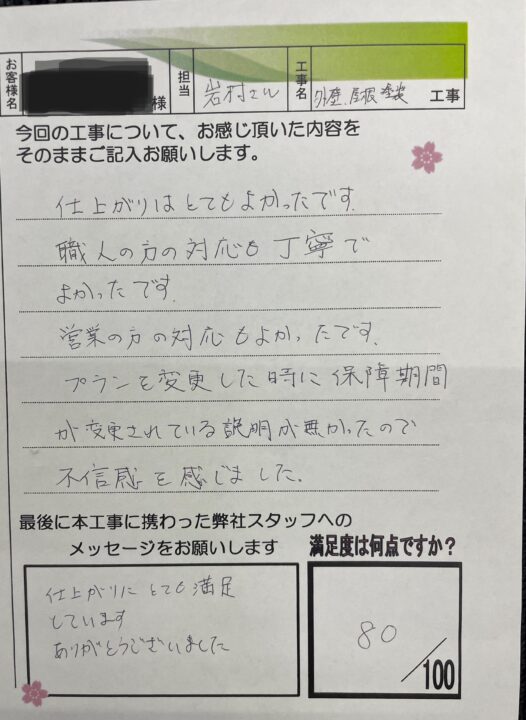 お客様名 様 担当 岩村さん 工事名 外壁、屋根塗装 工事
今回の工事について、お感じ頂いた内容を
そのままご記入お願いします。
仕上がりはとてもよかったです。
職人の方の対応も丁寧で
よかったです。
営業の方の対応もよかったです。
プランを変更した時に保障期間
が変更されている説明が無かったので
不信感を感じました。
最後に本工事に携わった弊社スタッフへの
メッセージをお願いします
仕上がりにとても満足
しています
ありがとうございました
満足度は何点ですか？
80
/100